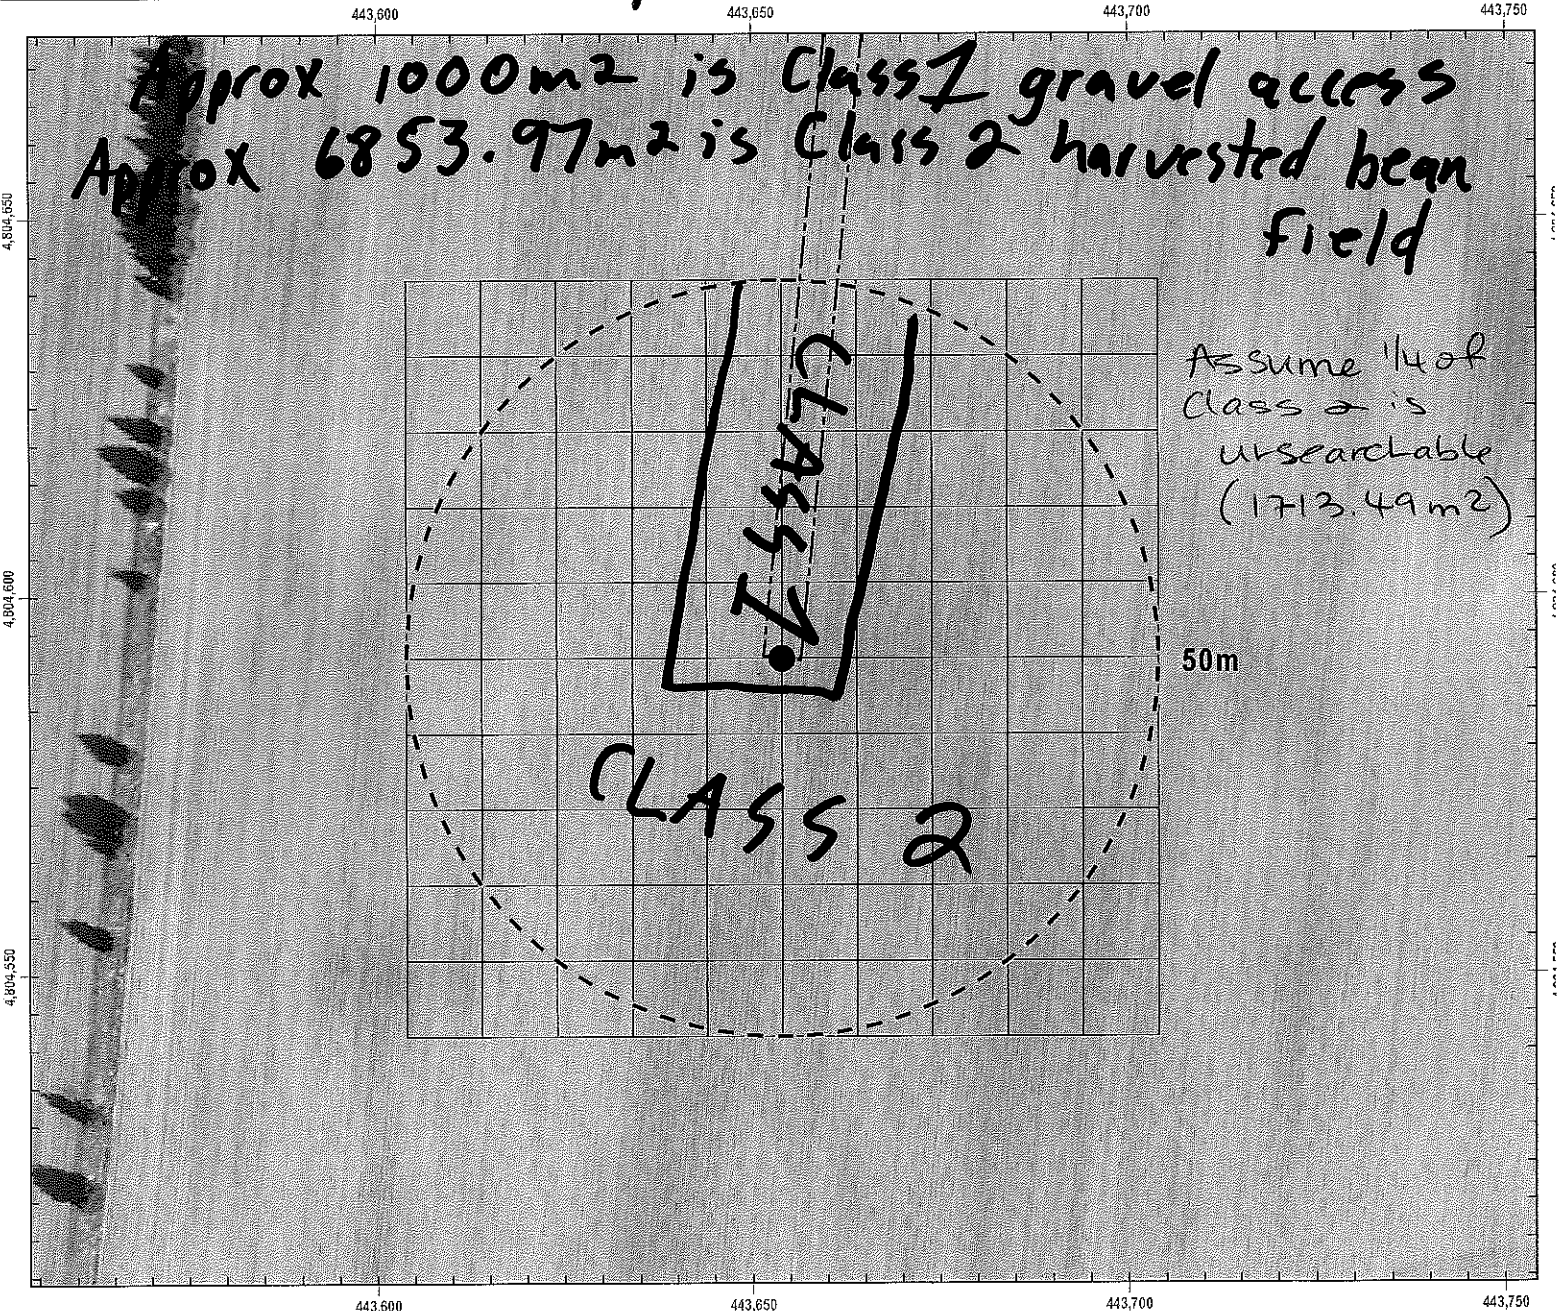 443,600 443,650 443,700 443,750
Approx 1000m2 is Class 1 gravel access
Approx 6853.97m2 is Class 2 harvested bean
field
4,804,650
Assume 1/4 of
Class 2 is
unsearchable
(1713.49m2)
CLASS 1
4,804,600
50m
CLASS 2
4,804,550
443,600 443,650 443,700 443,750